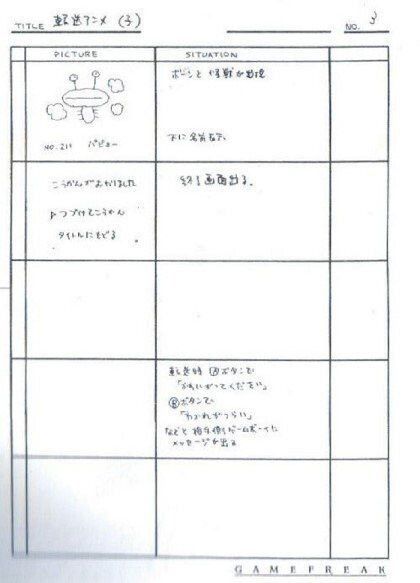 TITLE 転送アニメ (子)
NO. 3
PICTURE
SITUATION
ボーンと 怪獣が出現
NO.211 バビョー
下に名前表示
こうかんがおわりました
▷つづけてこうかん
タイトルにもどる
終了画面出る。
転送時 Ⓐボタンで
「かわいがってください」
Ⓑボタンで
「わかれがつらい」
などと 相手側ゲームボーイに
メッセージが出る
GAMEFREAK